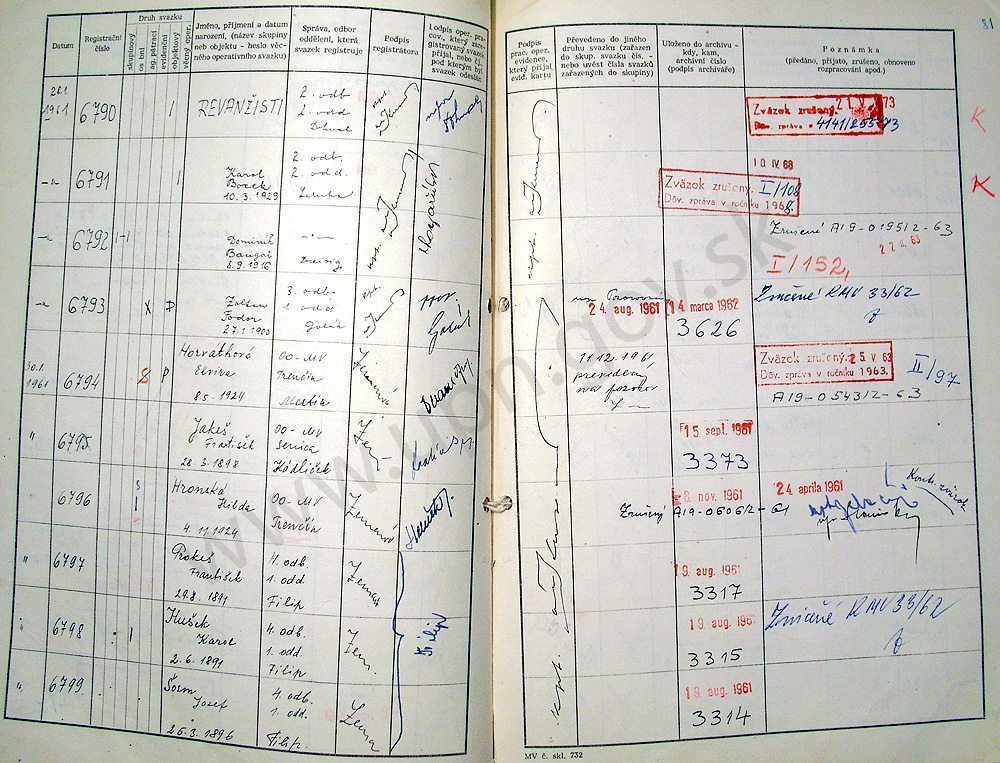 Datum
Registrační číslo
Druh svazku
skupinový
os bní
ag. pátrací
evidenční
objektový
věcný oper.
Jméno, příjmení a datum
narození, (název skupiny
neb objektu - heslo věc-
ného operativního svazku)
Správa, odbor
oddělení, která
svazek registruje
Podpis
registrátora
Podpis oper. pra-
cov., který zare-
gistrovaný svazek
přijal, nebo čj.,
pod kterým byl
svazek odeslán
28.1.
1961
6790
REVANŽISTI
2. odb
2. odd
-"-
6791
Karol
Bozek
10. 3. 1929
2. odb.
2. odd.
-"-
6792
Dominik
Baugat
8. 9. 1916
-"-
6793
X
P
Zoltan
Fodor
27. 1. 1900
3. odb.
1. odd
30.1.
1961
6794
P
Horváthová
Elvíra
8. 5. 1924
OO-MV
Trenčín
Martík
"
6795
Jakeš
František
28. 3. 1898
OO-MV
Senica
Hádliček
"
6796
s
Hronská
Hilda
4. 11. 1924
OO-MV
Trenčín
"
6797
Prokeš
František
29. 8. 1891
4. odb.
1. odd.
Filip
"
6798
Hušek
Karol
2. 6. 1891
4. odb.
1. odd.
Filip
Zem.
"
6799
Šorm
Josef
25. 3. 1896
4. odb.
1. odd.
Filip
Filip
81
Podpis
prac. oper.
evidence,
který přijal,
evid. kartu
Převedeno do jiného
druhu svazku (zařazen
do skup. svazku čís. -
nebo uvést čísla svazků
zařazených do skupiny)
Uloženo do archivu -
kdy, kam,
archivní číslo
(podpis archiváře)
Poznámka
(předáno, přijato, zrušeno, obnoveno
rozpracování apod.)
21. V. 73
Zväzok zrušený.
Dův. zpráva v 4141/255-73
K
10. IV. 68
Zväzok zrušený. I/108
Dův. zpráva v ročníku 1968.
K
Zrušené A19-0195/2-63
22. II. 63
I/152,
na Pozorovací
24. aug. 1961
14. marca 1962
3626
Zničené RMV 33/62
11. 12. 1961
prevedený
na pozorov
Zväzok zrušený. 25. V 63
Dův. zpráva v ročníku 1963.
II/97
A19-0543/2-63
15. sept. 1961
3373
8. nov. 1961
24. apríla 1961
Zrušený A19-0606/2-61
Kont. zväzok
19. aug. 1961
3317
19. aug. 1961
3315
Zničené RMV 33/62
19. aug. 1961
3314
MV č. skl. 732
www.upn.gov.sk